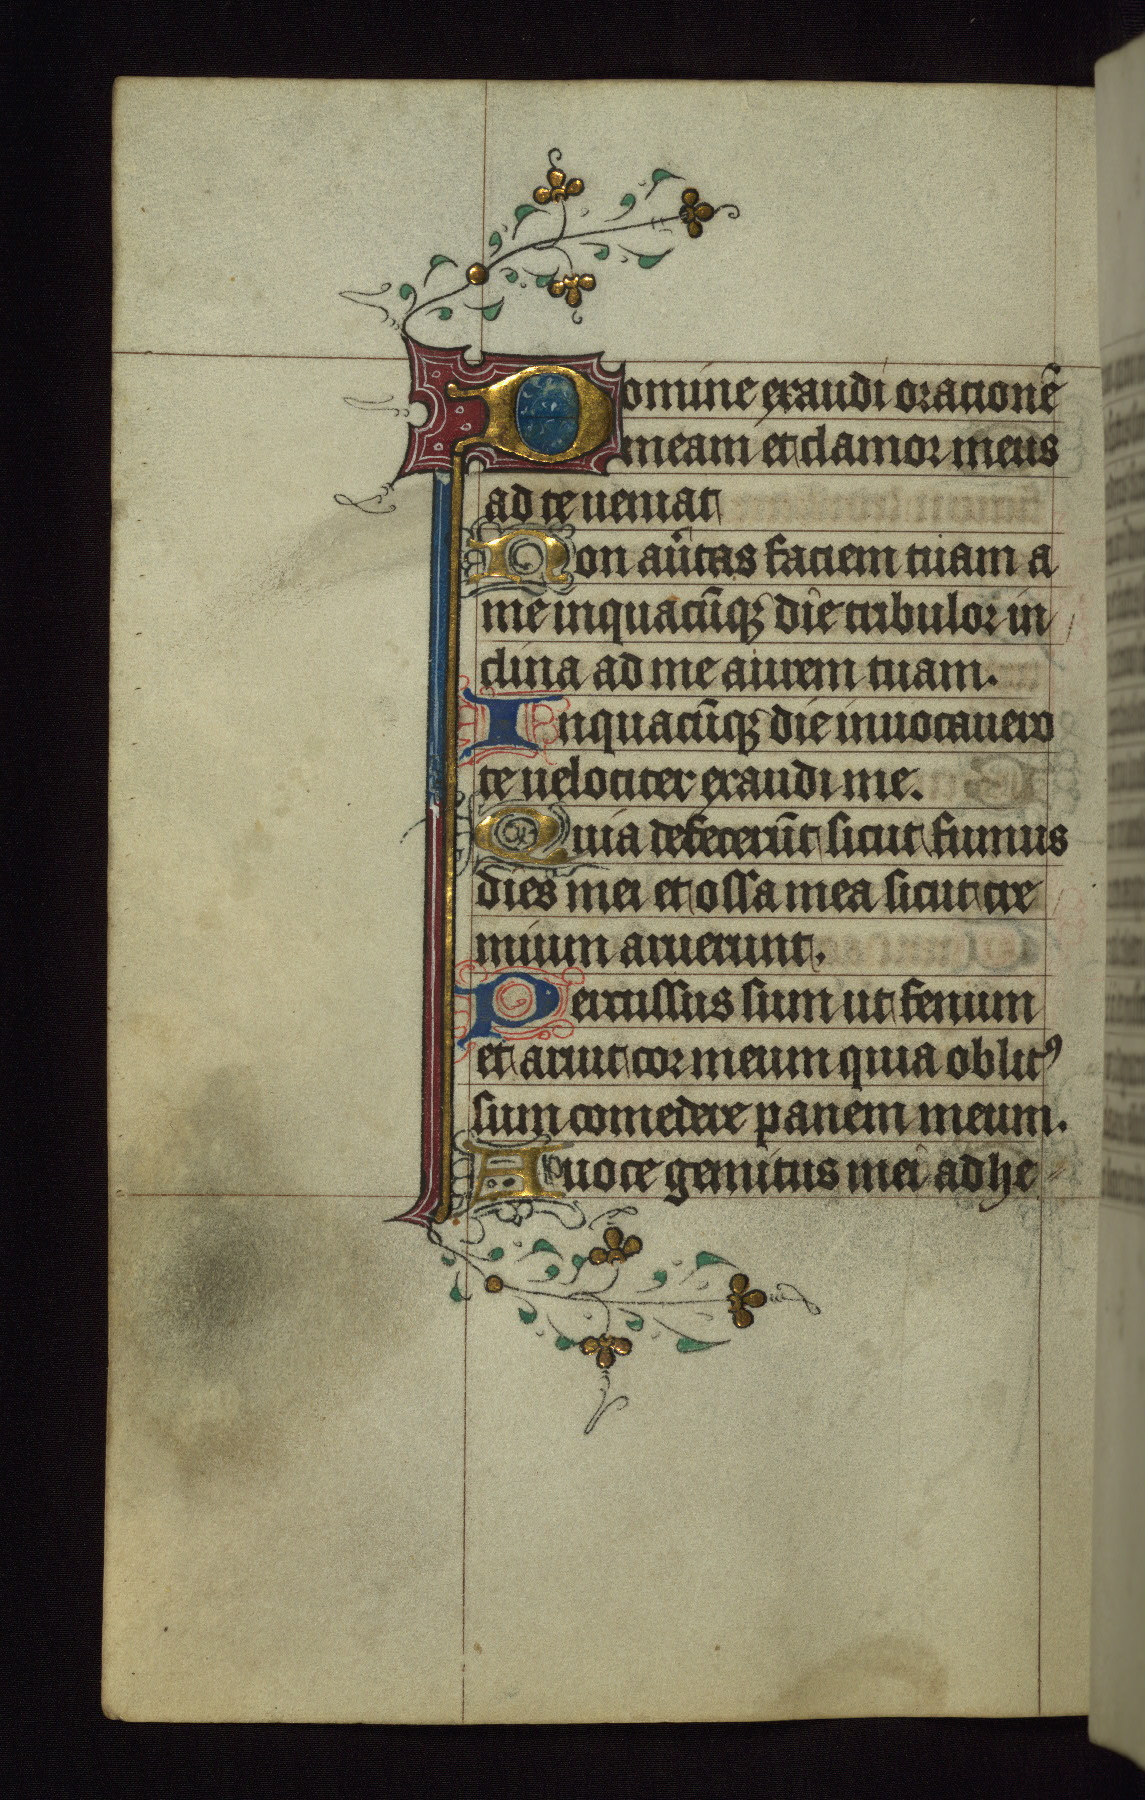 Domine exaudi oracionē
meam et clamor meus
ad te ueniat
Non aūtas faciem tuam a
me inquacūqꝫ die tribulor in
clina ad me aurem tuam.
Inquacūqꝫ die inuocauero
te uelociter exaudi me.
Quia defecerūt sicut fumus
dies mei et ossa mea sicut cre
mium aruerunt.
Percussus sum ut fenum
et aruit cor meum quia oblitꝰ
sum comedere panem meum.
A uoce gemitus mei adhe